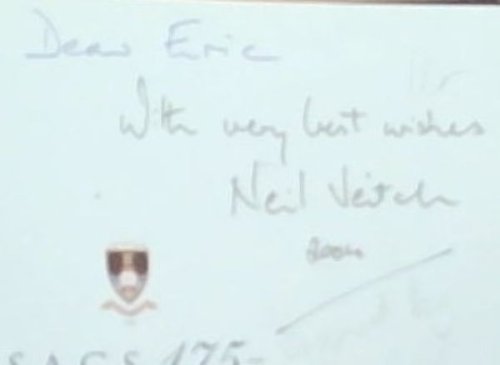 Dear Eric
With very best wishes
Neil Veitch
2004
SACS 175-